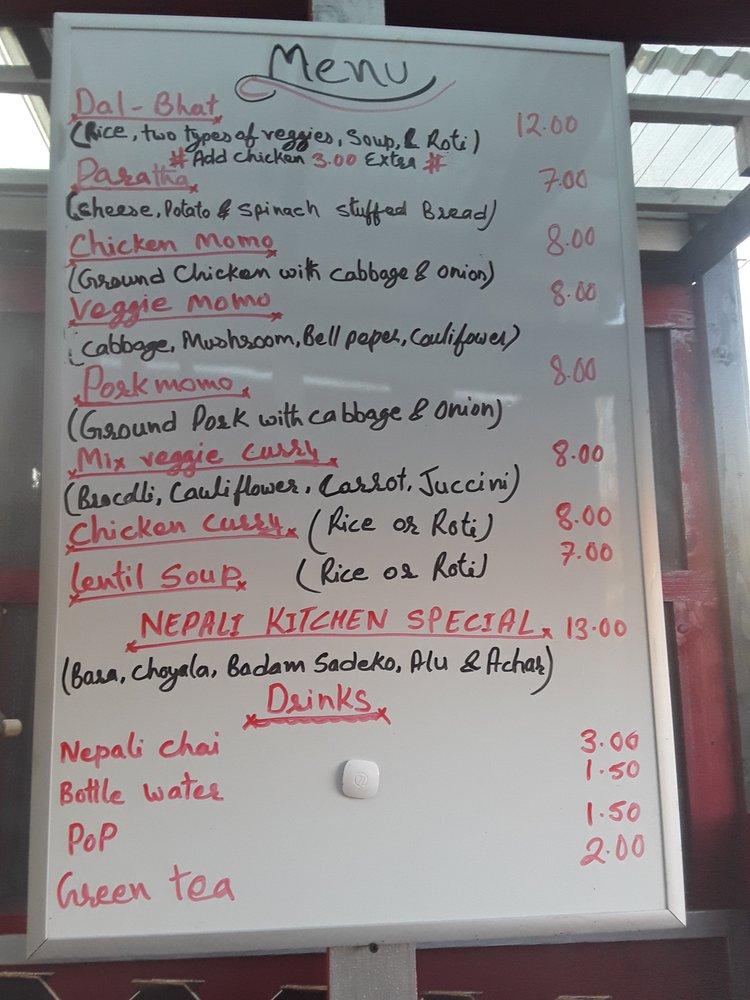 Menu
Dal-Bhat 12.00
(Rice, two types of veggies, Soup, & Roti)
# Add chicken 3.00 Extra #
Paratha 7.00
(Cheese, Potato & Spinach stuffed Bread)
Chicken Momo 8.00
(Ground Chicken with cabbage & onion)
Veggie Momo 8.00
(Cabbage, Mushroom, Bell peper, Caulifower)
Pork momo 8.00
(Ground Pork with cabbage & onion)
Mix veggie curry 8.00
(Brocolli, Cauliflower, Carrot, Juccini)
Chicken curry (Rice or Roti) 8.00
Lentil Soup (Rice or Roti) 7.00
NEPALI KITCHEN SPECIAL 13.00
(Bara, Choyala, Badam Sadeko, Alu & Achar)
Drinks
Nepali chai 3.00
Bottle water 1.50
PoP 1.50
Green tea 2.00